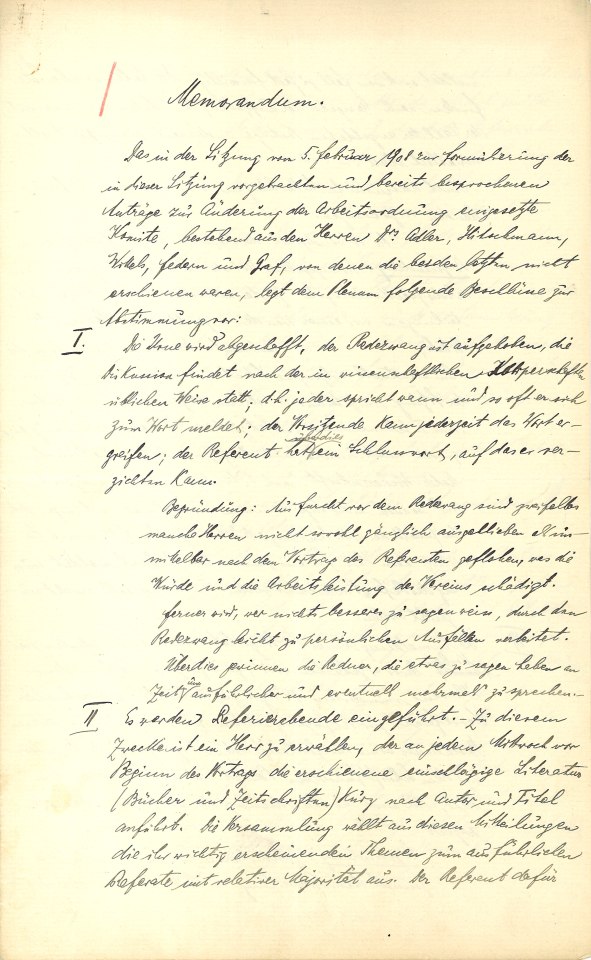 Memorandum.
Das in der Sitzung von 5. Februar 1908 zur Formulierung der
in dieser Sitzung vorgebrachten und bereits besprochenen
Anträge zur Änderung der Arbeitsordnung eingesetzte
Komite, bestehend aus den Herren Dr. Adler, Hitschmann,
Wittels, Federn und Graf, von denen die beiden letzten nicht
erschienen waren, legt dem Plenum folgende Beschlüsse zur
Abstimmung vor:
I. Die Urne wird abgeschafft, der Redezwang ist aufgehoben, die
Diskussion findet nach der in wissenschaftlichen Körperschaften
üblichen Weise statt; d.h. jeder spricht wann und so oft er sich
zum Wort meldet; der Vorsitzende kann jederzeit das Wort er-
greifen; der Referent hat überdies ein Schlusswort, auf das er ver-
zichten kann.
Begründung: Aus Furcht vor dem Redezwang sind zweifellos
manche Herren nicht sowohl gänzlich ausgeblieben als un-
mittelbar nach dem Vortrag des Referenten geflohen, was die
Würde und die Arbeitsleistung des Vereins schädigt.
Ferner wird, wer nichts besseres zu sagen weiss, durch den
Redezwang leicht zu persönlichen Ausfällen verleitet.
Überdies gewinnen die Redner, die etwas zu sagen haben an
Zeit um ausführlicher und eventuell mehrmals zu sprechen.-
II Es werden Referierabende eingeführt. - Zu diesem
Zwecke ist ein Herr zu erwählen, der an jedem Mittwoch vor
Beginn des Vortrags die erschienene einschlägige Literatur
(Bücher und Zeitschriften) kurz nach Autor und Titel
anführt. Die Versammlung wählt aus diesen Mitteilungen
die ihr wichtig erscheinenden Themen zum ausführlichen
Referate mit relativer Majorität aus. Der Referent dafür